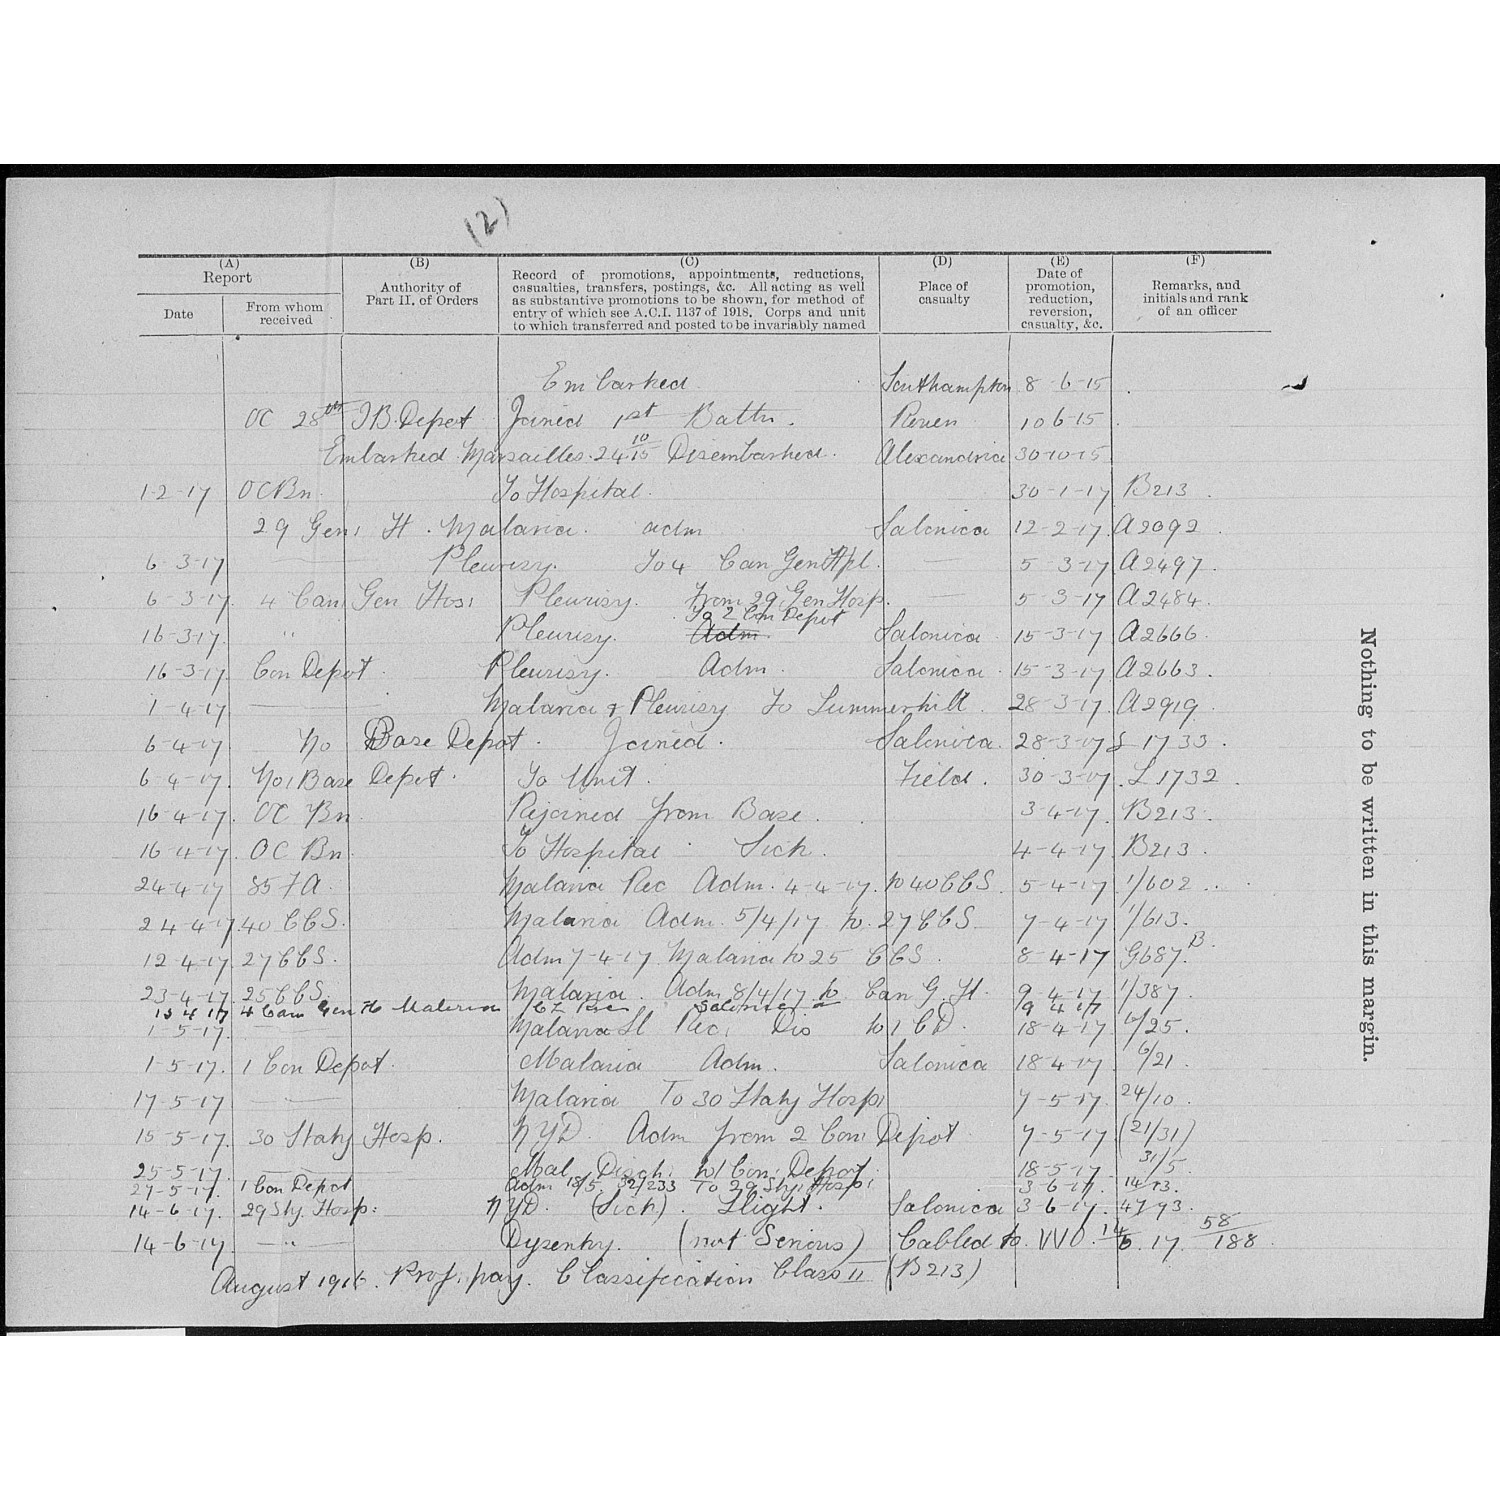 (2)
(A) Report
Date
From whom received
(B) Authority of Part II. of Orders
(C) Record of promotions, appointments, reductions, casualties, transfers, postings, &c. All acting as well as substantive promotions to be shown, for method of entry of which see A.C.I. 1137 of 1918. Corps and unit to which transferred and posted to be invariably named
(D) Place of casualty
(E) Date of promotion, reduction, reversion, casualty, &c.
(F) Remarks, and initials and rank of an officer
Embarked Southampton 8-6-15
OC 28th I.B. Depot Joined 1st Battn. Rouen 10 6-15
Embarked Marsailles 24 10/15 Disembarked. Alexandria 30-10-15
1-2-17 OC Bn. To Hospital. 30-1-17 B213.
29 Genl H. Malaria. adm Salonica 12-2-17 A2092
6-3-17 Pleurisy. To 4 Can Gen Hpl. 5-3-17 A2497.
6-3-17. 4 Can Gen Hos: Pleurisy. From 29 Gen Hosp. 5-3-17 A2484.
To 2 Con Depot
16-3-17. " Pleurisy. Adm. Salonica. 15-3-17 A2666.
16-3-17. Con Depot. Pleurisy. Adm. Salonica. 15-3-17 A2663.
1-4-17 Malaria & Pleurisy To Summerhill. 28-3-17. A2919.
6-4-17 No Base Depot. Joined. Salonica. 28-3-17 L 1733.
6-4-17. No 1 Base Depot. To Unit. Field. 30-3-17. L 1732.
16-4-17. OC Bn. Rejoined from Base. 3-4-17. B213.
16-4-17. OC Bn. To Hospital Sick. 4-4-17. B213.
24-4-17 85 FA. Malaria Rec Adm. 4-4-17. to 40 CCS. 5-4-17 1/602
24-4-17. 40 CCS. Malaria Adm. 5/4/17 to 27 CCS 7-4-17 1/613.
12-4-17. 27 CCS. Adm 7-4-17 Malaria to 25 CCS. 8-4-17 G687. B.
23-4-17. 25 CCS. Malaria. Adm 8/4/17 to Can G H. 9-4-17 1/387
13 4 17 4 Can Gen Ho Malaria Rec Salonica 9 4 17
1-5-17. Malaria Sl Rec: Dis to 1 CD. 18-4-17 6/25.
1-5-17. 1 Con Depot. Malaria Adm. Salonica 18-4-17 6/21
17-5-17 Malaria To 30 Staty Hosp: 7-5-17. 24/10.
15-5-17. 30 Staty Hosp. NYD. Adm from 2 Con: Depot 7-5-17 (21/31)
25-5-17. Mal. Disch: to 1 Con: Depot. 18-5-17 31/5.
27-5-17. 1 Con Depot Adm 18/5. 32/233 To 29 Sty: Hosp: 3-6-17. 14/13.
14-6-17. 29 Sty. Hosp: NYD. (Sick). Slight. Salonica 3-6-17. 47/93.
14-6-17 " Dysentry. (not Serious) Cabled to WO. 14/6.17. 58/188.
August 1916. Prof: pay. Classification Class II (B213)
Nothing to be written in this margin.